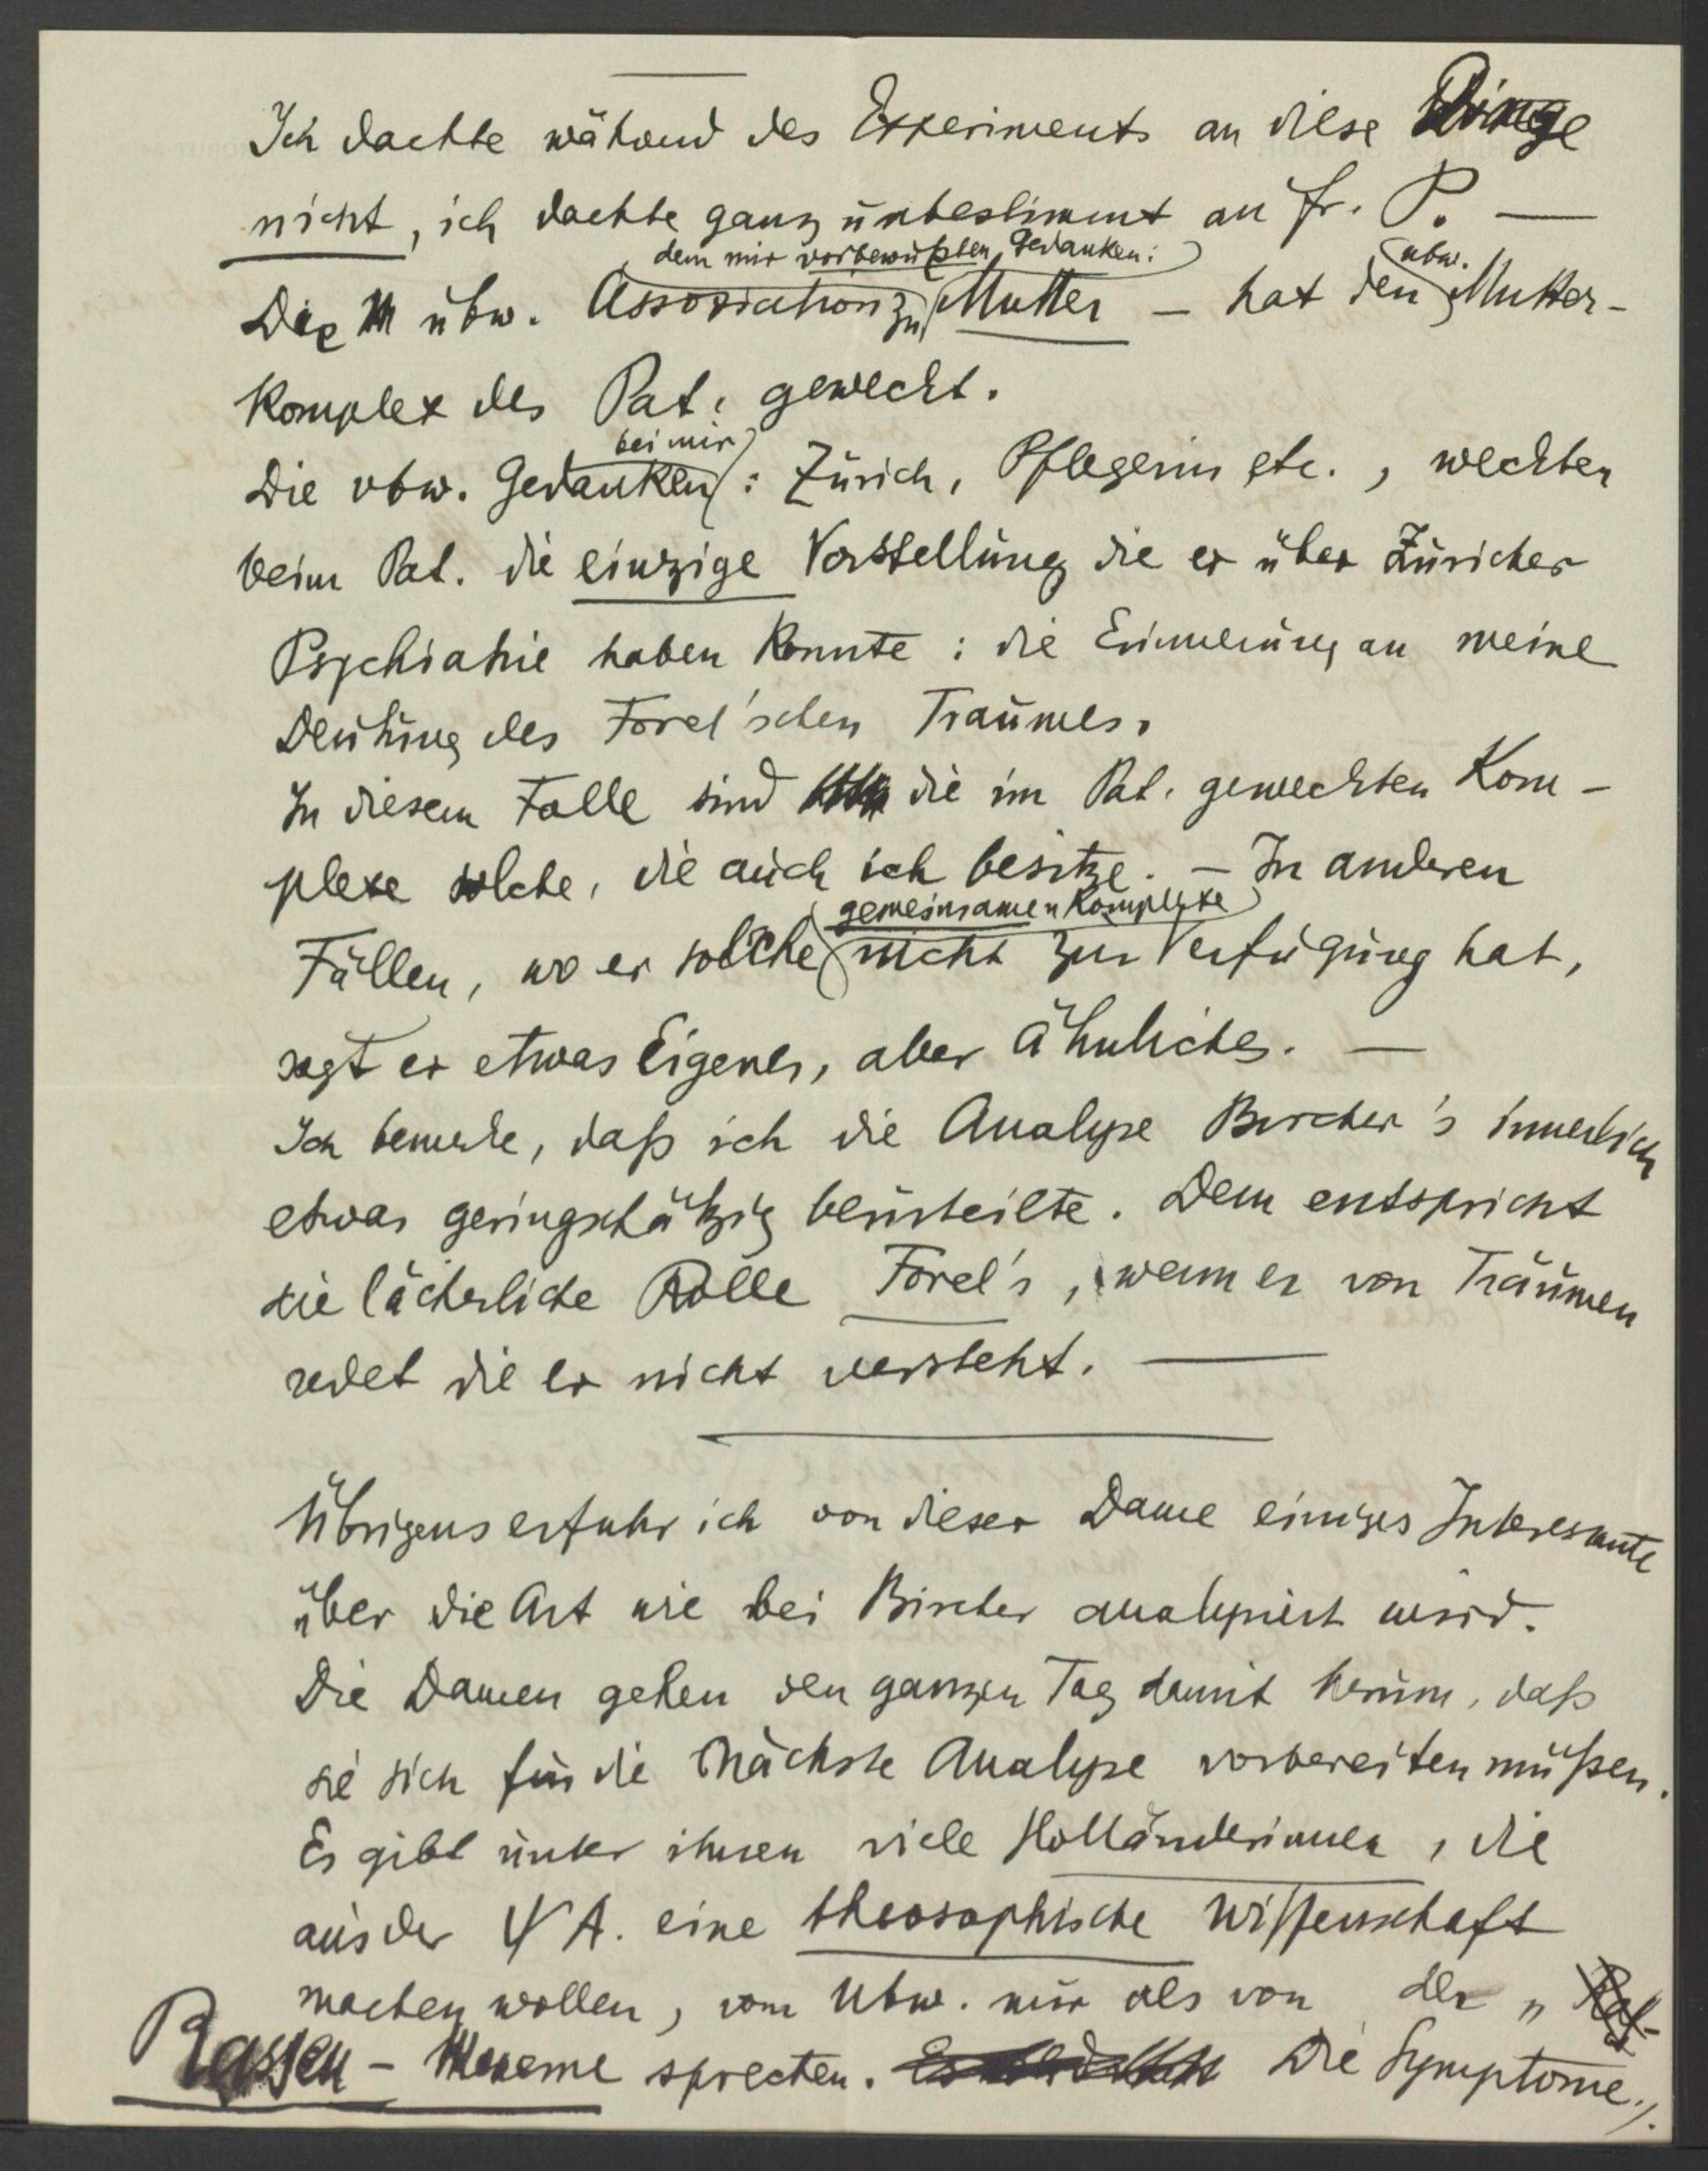 Ich dachte während des Experiments an diese Dinge
nicht, ich dachte ganz unbestimmt an Fr. P. —
dem mir vorbewußten Gedanken:
ubw.
Die ubw. Association zu Mutter – hat den Mutter-
komplex des Pat. geweckt.
bei mir
Die vbw. Gedanken : Zürich, Pflegerin etc., weckten
beim Pat. die einzige Vorstellung die er über Züricher
Psychiatrie haben konnte : die Erinnerung an meine
Deutung des Forel'schen Traumes.
In diesem Falle sind die im Pat. geweckten Kom-
plexe solche, die auch ich besitze. – In anderen
gemeinsamen Komplexe
Fällen, wo er solche nicht zur Verfügung hat,
sagt er etwas Eigenes, aber Ähnliches. —
Ich bemerke, daß ich die Analyse Bircher's innerlich
etwas geringschätzig beurteilte. Dem entspricht
die lächerliche Rolle Forel's, wenn er von Träumen
redet die er nicht versteht. —
Übrigens erfuhr ich von dieser Dame einiges Interessante
über die Art wie bei Bircher analysiert wird.
Die Damen gehen den ganzen Tag damit herum, daß
sie sich für die nächste Analyse vorbereiten müßen.
Es gibt unter ihnen viele Holländerinnen, die
aus der ΨA. eine theosophische Wissenschaft
machen wollen, vom Ubw. nur als von der „
Rassen-Mneme sprechen. Die Symptome ./.